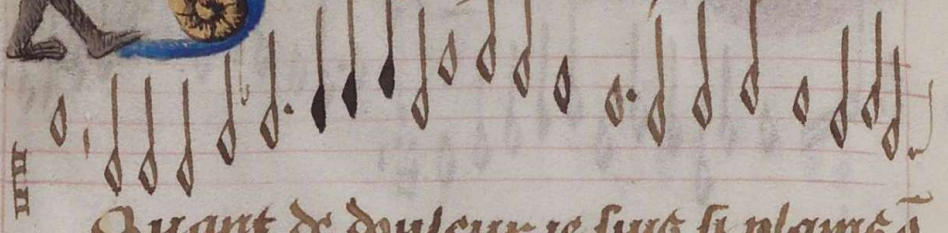 Quant de douleur ie suis si plains